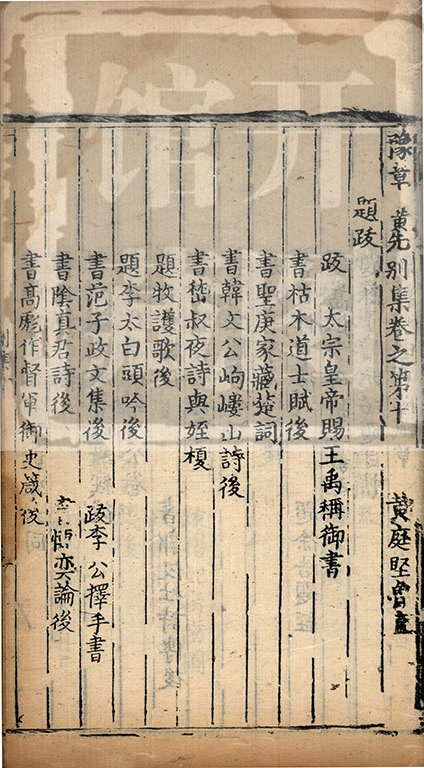 豫章黄先別集卷之第十 黄庭堅魯直
題跋
跋太宗皇帝賜王禹稱御書
書枯木道士賦後
書聖庚家藏楚詞
書韓文公岣嶁山詩後
書嵆叔夜詩與姪榎
題牧護歌後
題李太白頭吟後
書范子政文集後 跋李公擇手書
書陰真君詩後 書悟奕論後
書髙彪作督軍御史箴後
開
館